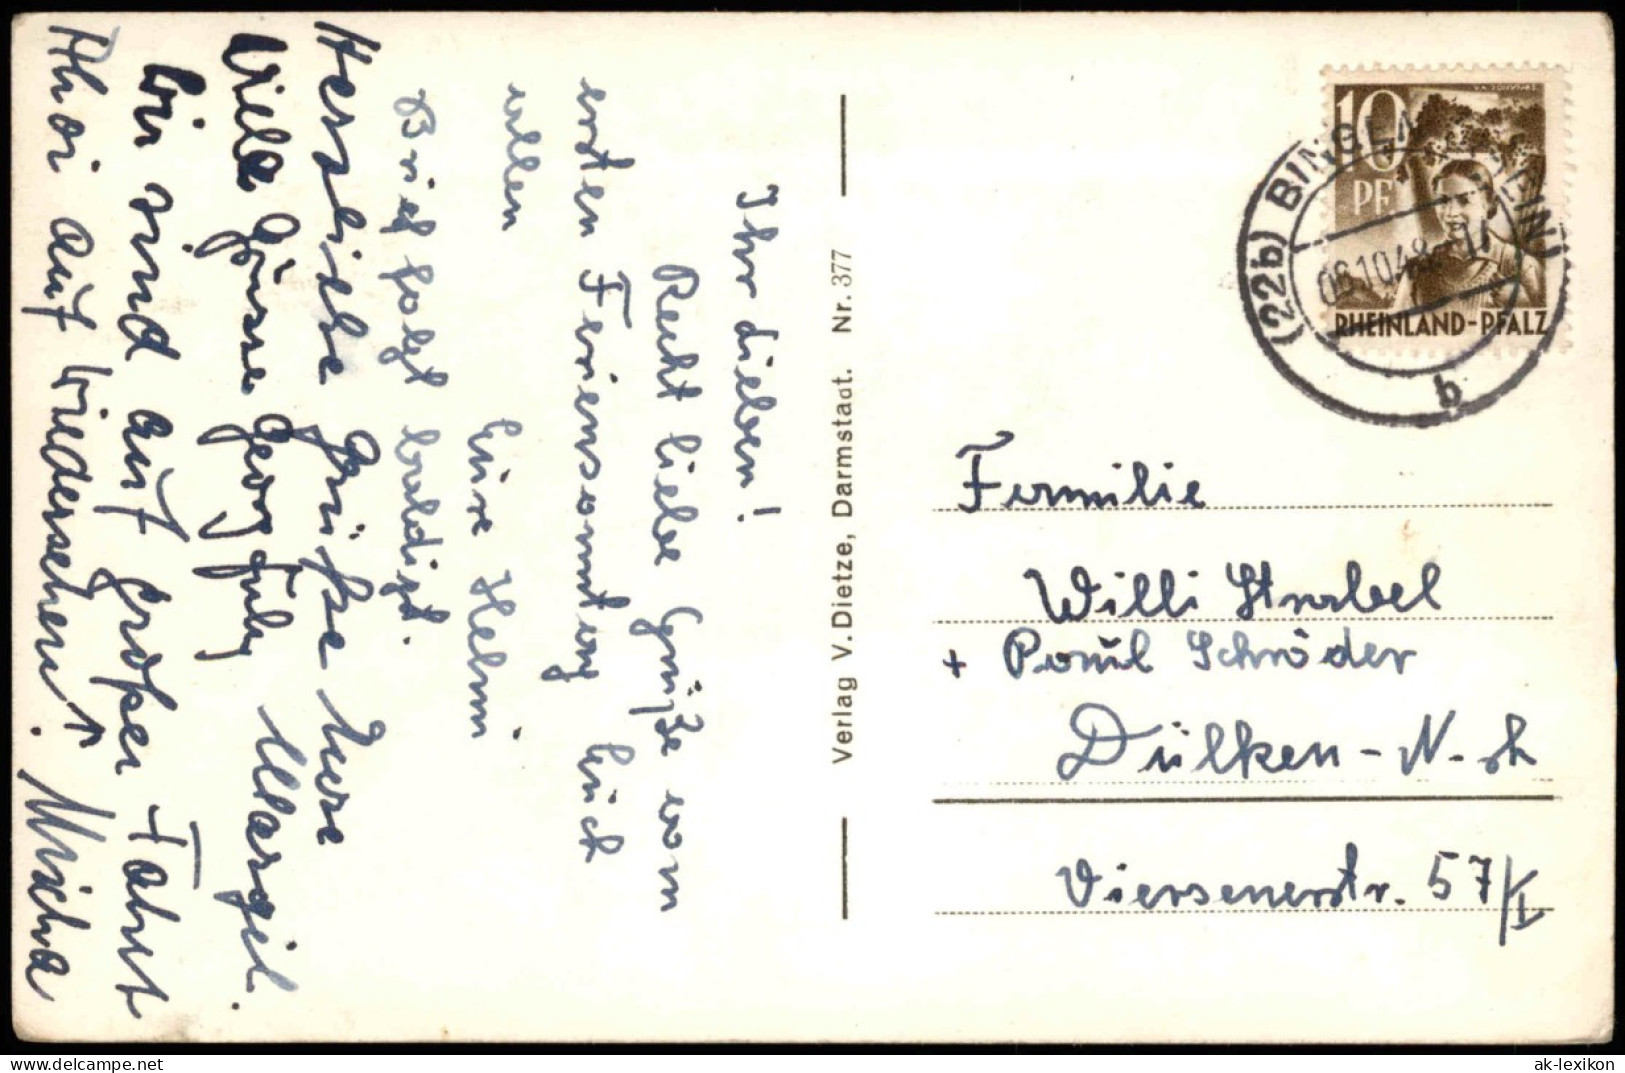 Ihr Lieben!
Recht liebe Grüße vom
ersten Feriensonntag Euch
allen
Eure Helmi
Brief folgt baldigst.
Herzliche Grüße Eure
Viele Grüsse Georg
Margit.
Wir sind auf großer Fahrt
Ahoi auf Wiedersehen! Micha
Verlag V. Dietze, Darmstadt. Nr. 377
10
PF
RHEINLAND-PFALZ
(22b) BINGEN (RHEIN)
06.10.48
b
Familie
Willi Strobel
+ Paul Schröder
Dülken-N-rh
Viersenerstr. 57/I
delcampe.net
ak-lexikon